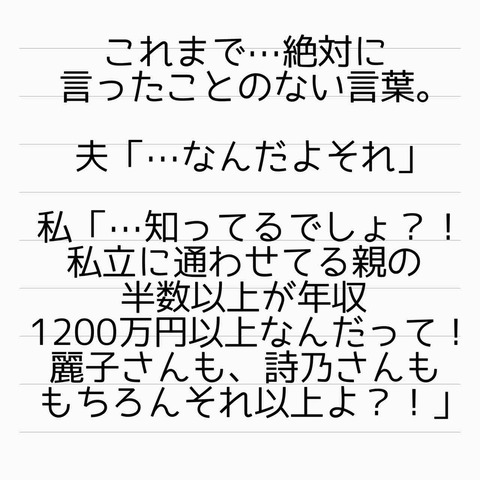 これまで…絶対に
言ったことのない言葉。
夫「…なんだよそれ」
私「…知ってるでしょ？！
私立に通わせてる親の
半数以上が年収
1200万円以上なんだって！
麗子さんも、詩乃さんも
もちろんそれ以上よ？！」